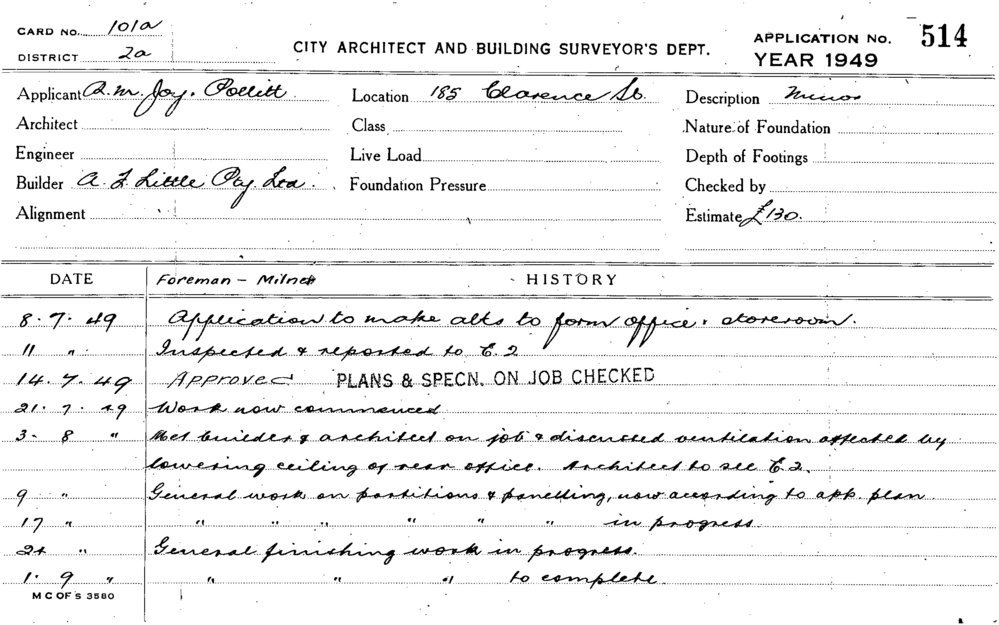 CARD NO. 101a
DISTRICT 2a
CITY ARCHITECT AND BUILDING SURVEYOR'S DEPT.
APPLICATION No. 514
YEAR 1949
Applicant R. M. Joy. Pollitt Location 185 Clarence St. Description Minor
Architect Class Nature of Foundation
Engineer Live Load Depth of Footings
Builder A. F. Little Pty Ltd. Foundation Pressure Checked by
Alignment Estimate £130.
DATE Foreman - HISTORY
8. 7. 49 Application to make alts to form office & storeroom.
11 " Inspected & reported to E.2
14. 7. 49 Approved PLANS & SPECN. ON JOB CHECKED
21. 7. 49 Work now commenced
3. 8 " Met builder & architect on job & discussed ventilation affected by
lowering ceiling of rear office. Architect to see E.2.
9 " General work on partitions & panelling, now according to app. plan
17 " " " " " " " in progress.
24 " General finishing work in progress.
1. 9 " " " " to complete.
M C OF S 3580